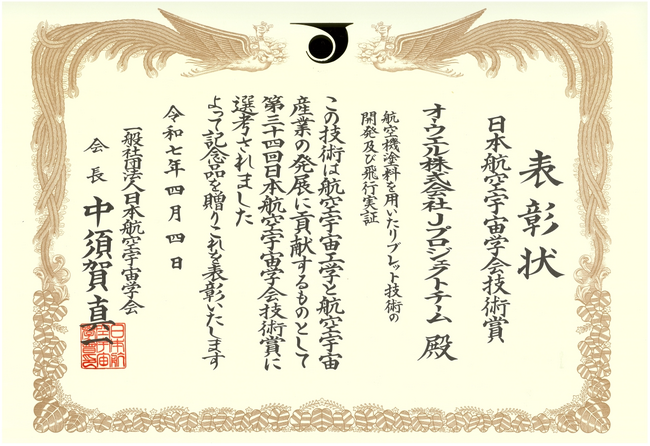 表彰状
日本航空宇宙学会技術賞
オウエル株式会社Jプロジェクトチーム 殿
航空機塗料を用いたリブレット技術の
開発及び飛行実証
この技術は航空宇宙工学と航空宇宙
産業の発展に貢献するものとして
第三十四回日本航空宇宙学会技術賞に
選考されました
よって記念品を贈りこれを表彰いたします
令和七年四月四日
一般社団法人日本航空宇宙学会
会長 中須賀真一